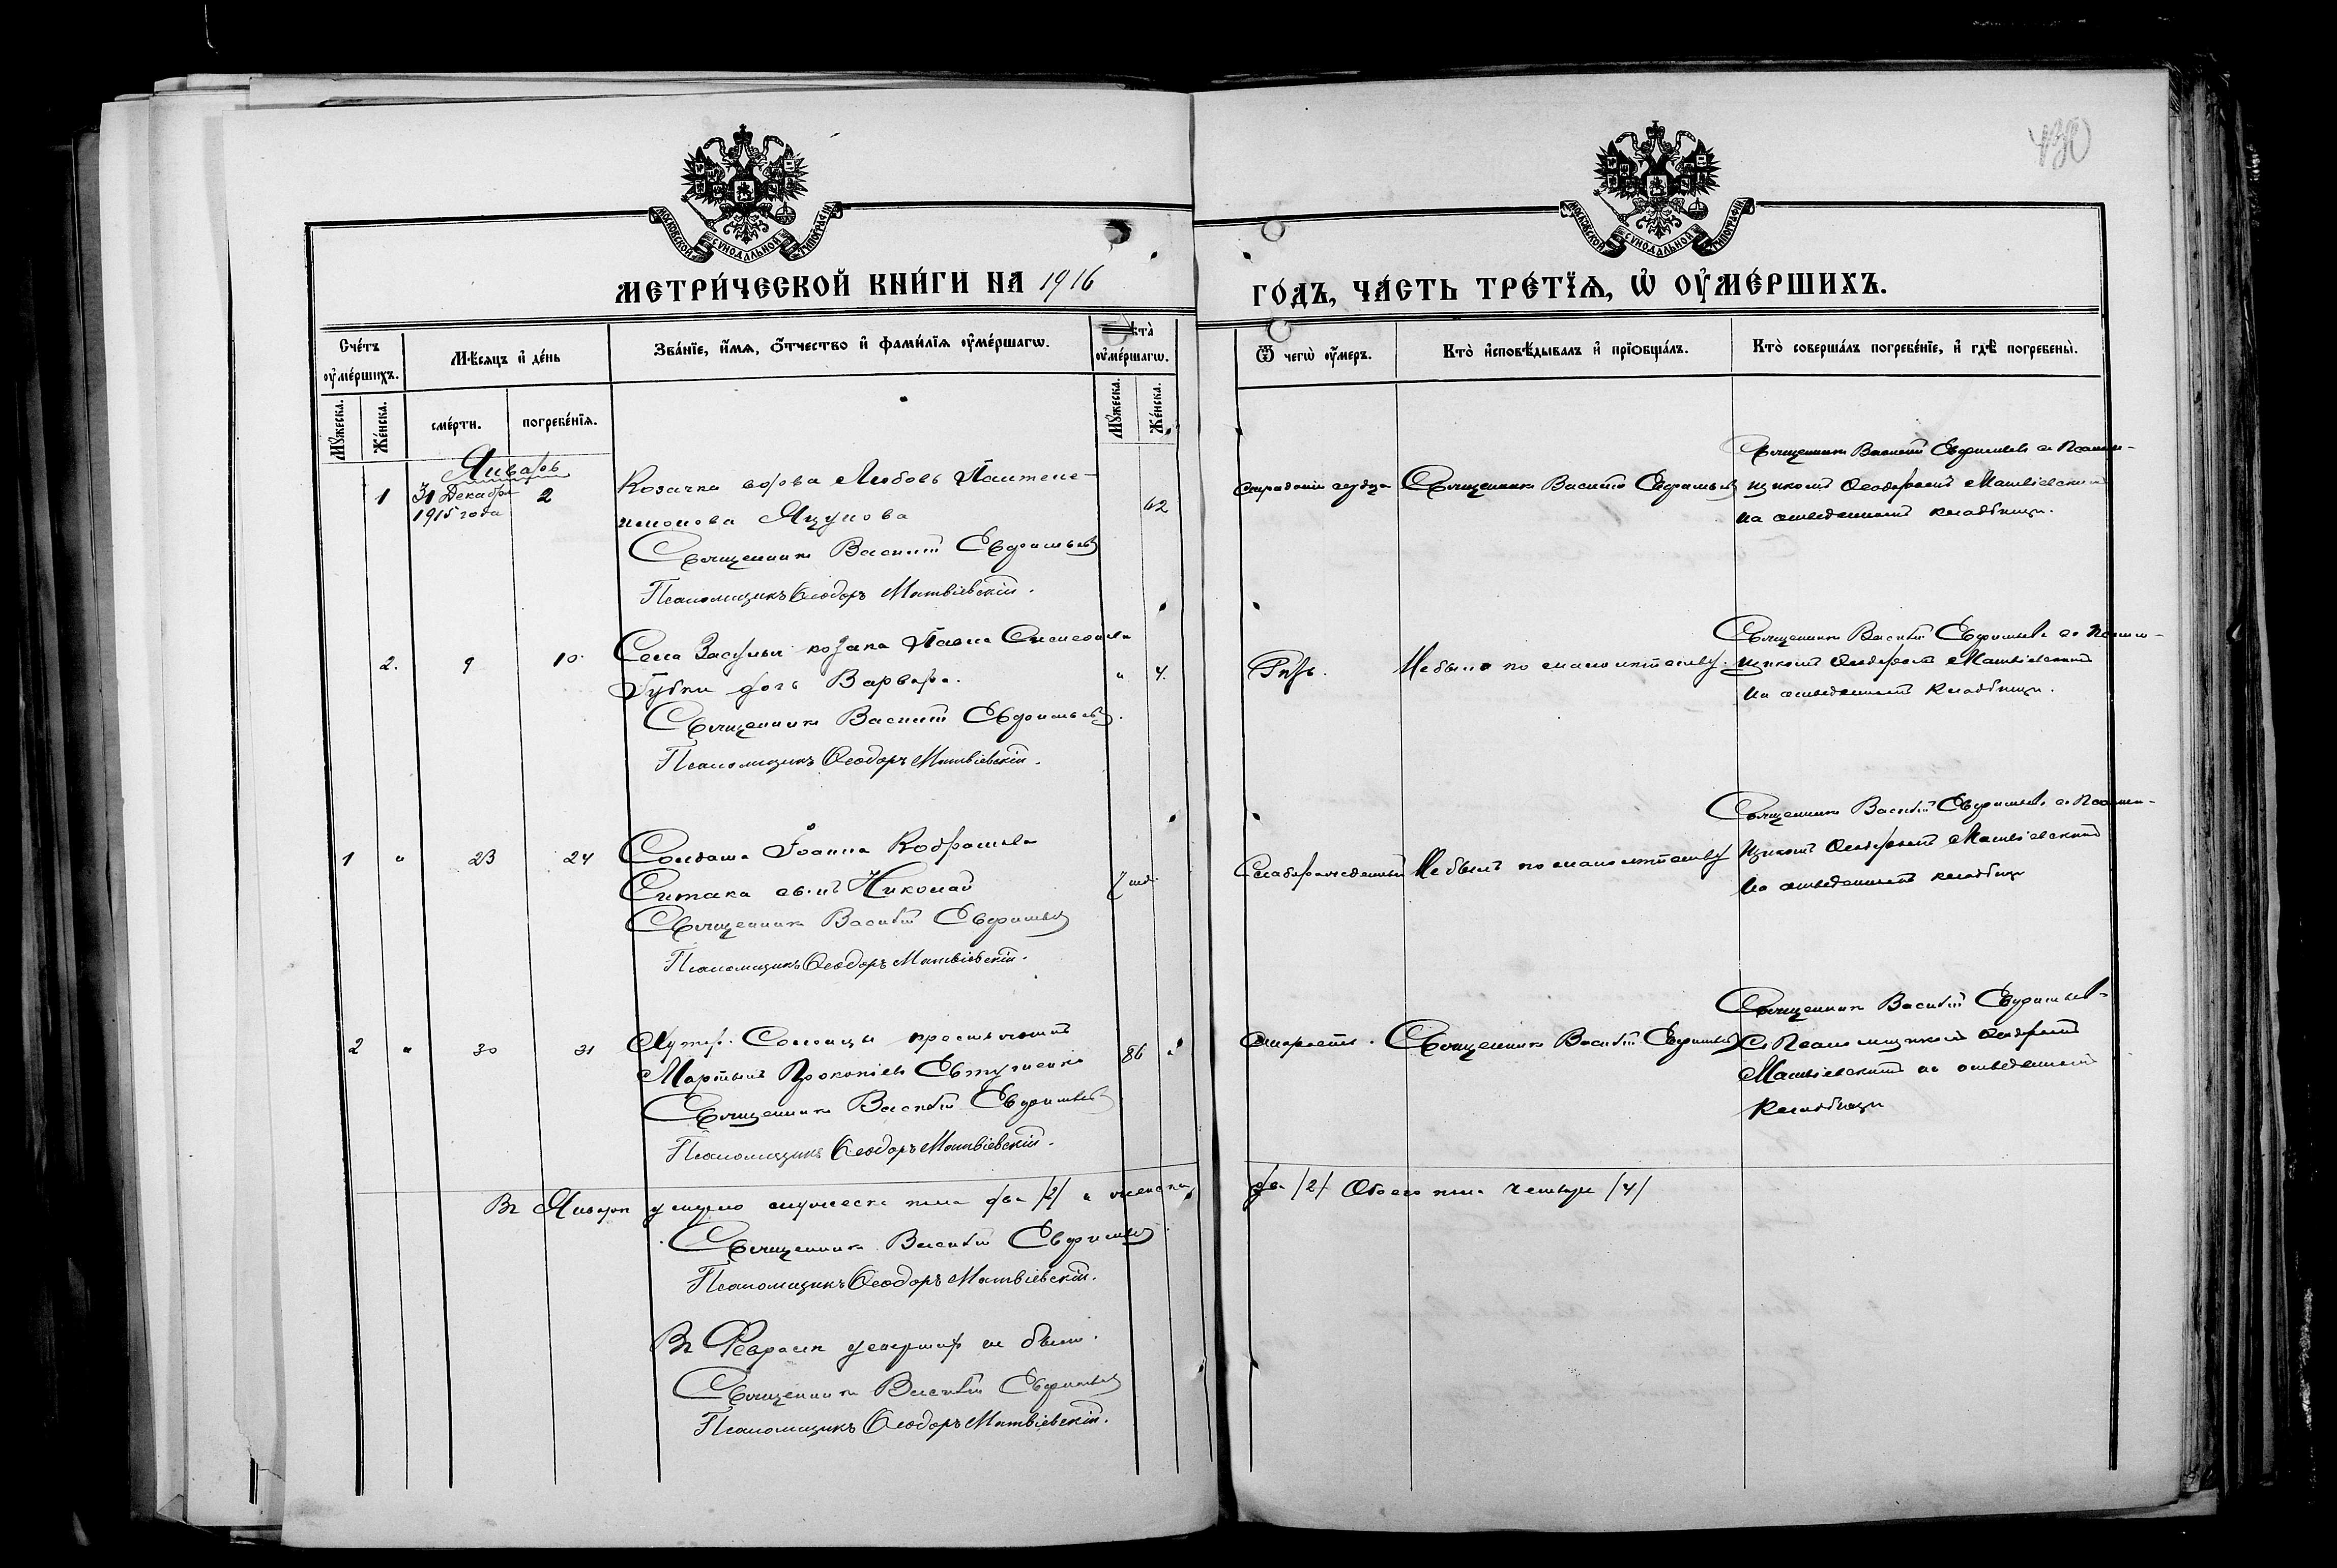 430
МОСКОВСКОЙ СѴНОДАЛЬНОЙ ТИПОГРАФІИ
МОСКОВСКОЙ СѴНОДАЛЬНОЙ ТИПОГРАФІИ
МЕТРИ́ЧЕСКОЙ КНИ́ГИ НА 1916
ГО́ДЪ, ЧА́СТЬ ТРЕ́ТІѦ, Ѡ҆ ОУ҆МЕ́РШИХЪ.
Сче́тъ оу҆ме́ршихъ.
Мѣ́сѧцъ и҆ де́нь
Зва́нїе, и҆́мѧ, ѻ҆́тчество и҆ фами́лїѧ оу҆ме́ршагѡ.
оу҆ме́ршагѡ.
Ѿ чегѡ̀ оу҆́меръ.
Кто̀ и҆сповѣ́дывалъ и҆ прїѡбща́лъ.
Кто̀ соверша́лъ погребе́нїе, и҆ гдѣ̀ погребены̀.
Мꙋ́жеска.
Же́нска.
сме́рти.
погребе́нїѧ.
Мꙋ́жеска.
Же́нска.
Январь
1 31 Декабря 1915 года 2
Козачка вдова Любовь Пантеле-
имонова Яцунова
62
Священникъ Василій Евфимьевъ
Псаломщикъ Ѳеодоръ Матвіевскій.
Страданіе сердца
Священникъ Василій Евфимьевъ
Священникъ Василій Евфимьевъ съ Псалом-
щикомъ Ѳеодоромъ Матвіевскимъ
на отведенномъ кладбищѣ.
2. 9 10.
Села Засулья козака Павла
Губки дочь Варвара.
" 4.
Священникъ Василій Евфимьевъ.
Псаломщикъ Ѳеодоръ Матвіевскій.
Не была по малолѣтству.
Священникъ Василій Евфимьевъ съ Псалом-
щикомъ Ѳеодоромъ Матвіевскимъ
на отведенномъ кладбищѣ.
1 " 23 24
Солдата Іоанна
сынъ Николай
Священникъ Василій Евфимьевъ
Псаломщикъ Ѳеодоръ Матвіевскій.
Слаборожденный
Не былъ по малолѣтству
Священникъ Василій Евфимьевъ съ Псалом-
щикомъ Ѳеодоромъ Матвіевскимъ
на отведенномъ кладбищѣ
2 " 30 31
Хутор. Солонцы
Мартынъ Прокопіевъ Евтушенко
86 "
Священникъ Василій Евфимьевъ
Псаломщикъ Ѳеодоръ Матвіевскій.
Старость.
Священникъ Василій Евфимьевъ
Священникъ Василій Евфимьевъ
съ Псаломщикомъ Ѳеодоромъ
Матвіевскимъ на отведенномъ
кладбищѣ
Въ Январѣ умерло мужеска пола два /2/ а женска
два /2/ Обоего пола четыре /4/
Священникъ Василій Евфимьевъ
Псаломщикъ Ѳеодоръ Матвіевскій.
Въ Февралѣ умершихъ не было.
Священникъ Василій Евфимьевъ
Псаломщикъ Ѳеодоръ Матвіевскій.